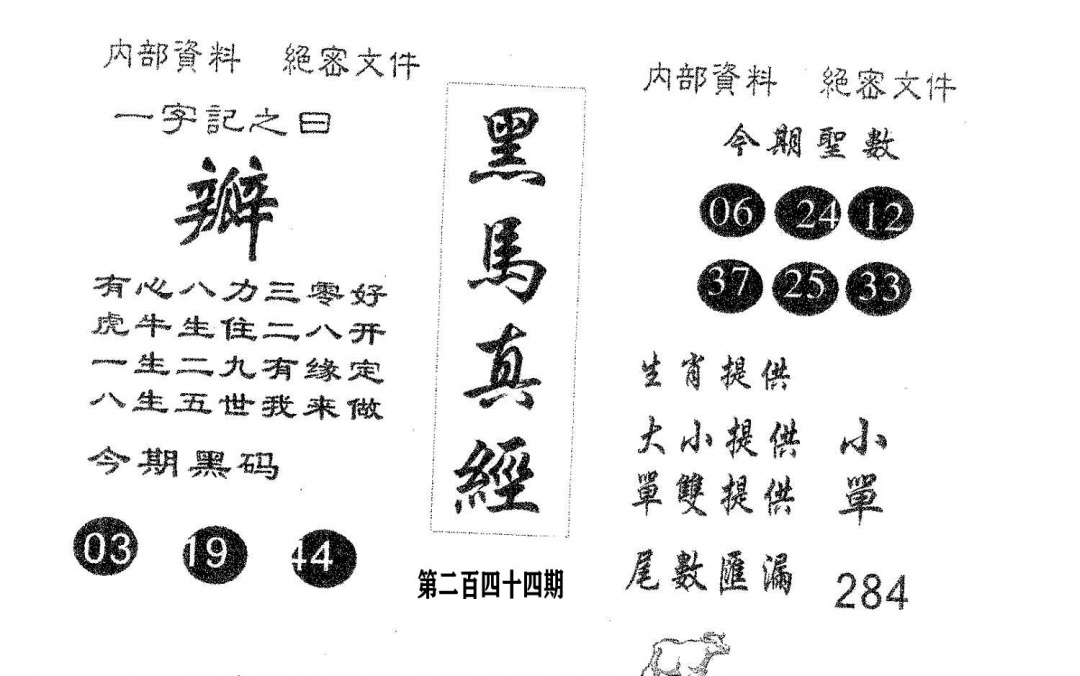 内部資料 絕密文件
一字記之曰
瓣
有心八力三零好
虎牛生住二八开
一生二九有缘定
八生五世我来做
今期黑码
03 19 44
黑馬真經
第二百四十四期
内部資料 絕密文件
今期聖數
06 24 12
37 25 33
生肖提供
大小提供 小
單雙提供 單
尾數匯漏 284